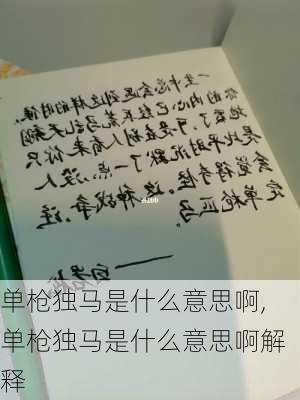 一生中总会遇到这样的时候,
你的内心已经兵荒马乱天翻
地覆了,可是在别人看来你只
是比平时沉默了一点,没人
会觉得奇怪。这种战争,注
定单枪匹马。
——白岩松
单枪独马是什么意思啊,
单枪独马是什么意思啊解
释